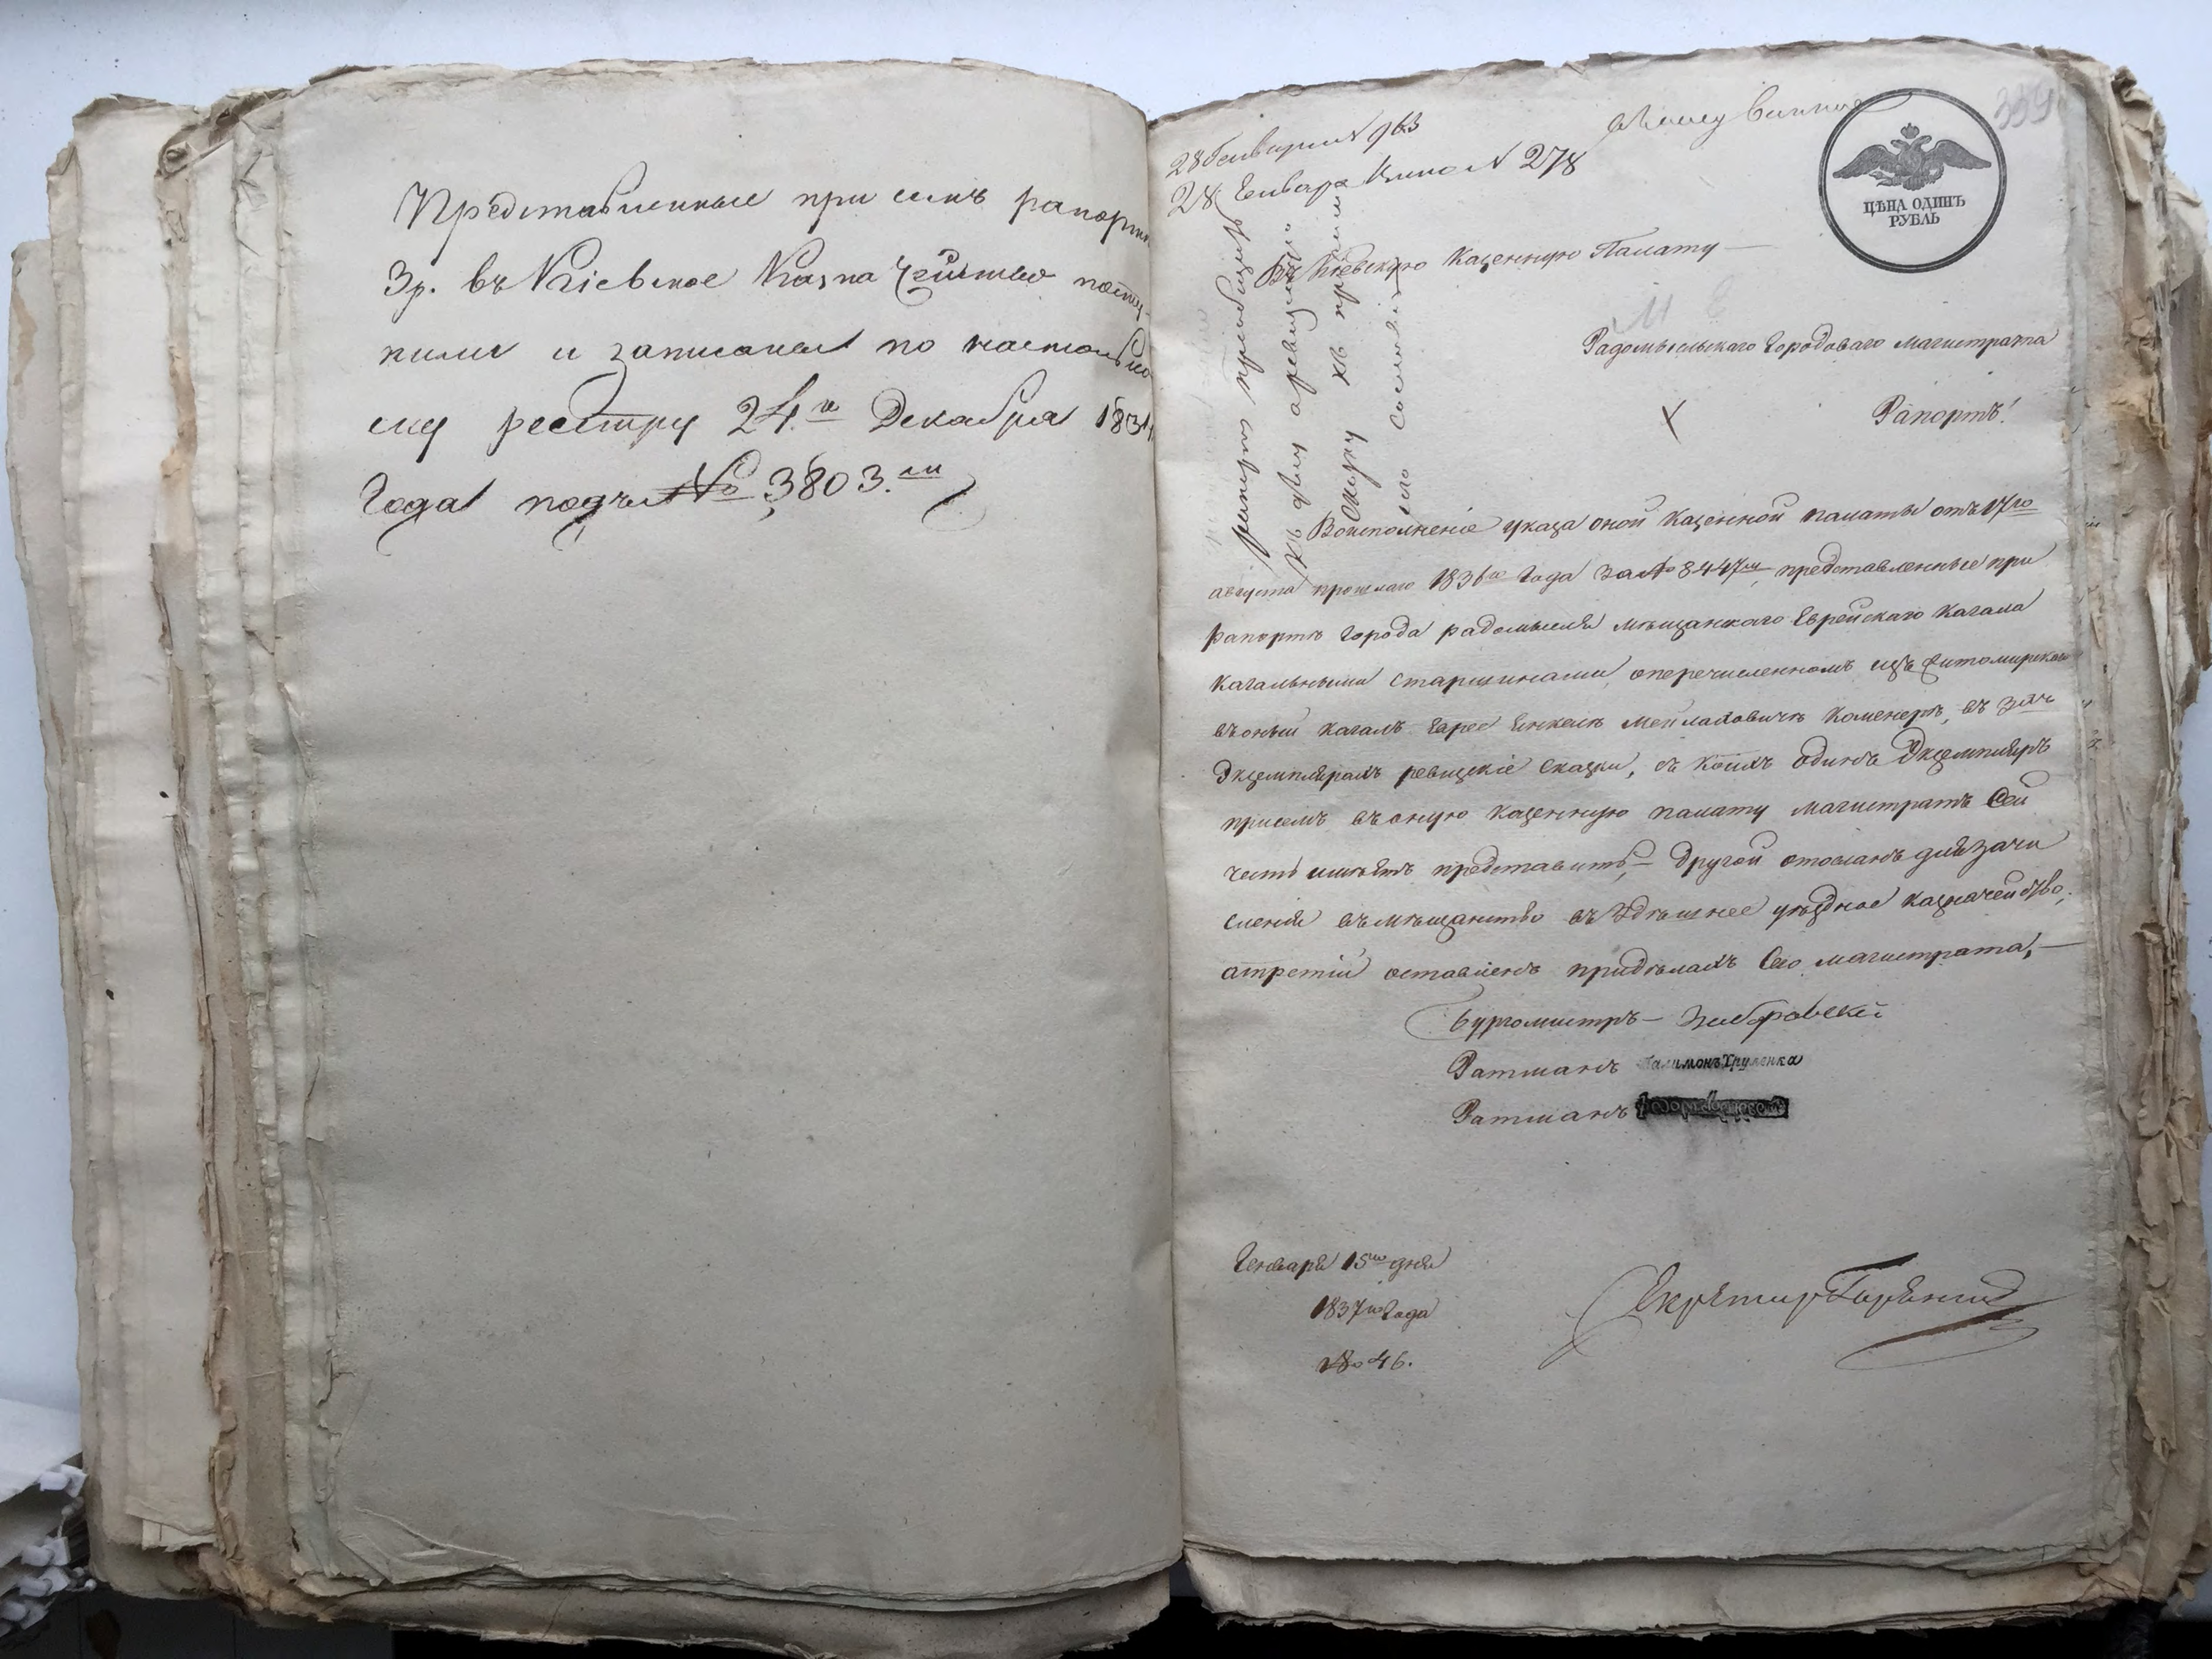 Представленные при семъ рапорте
3 р. въ Кіевское Казначейство посту
пили и записаны по настольно
му реестру 24.го Декабря 183
Года подъ № 3803.мъ
28 Генваря N 963
28 Генваря N 278
339
ЦѢНА ОДИНЪ
РУБЛЬ
Въ Кіевскую Казенную Палату
Радомысльскаго Городоваго магистрата
Рапортъ!
рапортъ приобщить
къ дѣлу
Воисполненіе указа оной Казенной палаты отъ 17го
августа прошлаго 1836го Года за № 8447мъ, представленные при
рапортѣ Города радомысля мѣщанскаго Еврейскаго Кагала
Кагальными Старшинами, оперечисленномъ изъ Житомирскаго
въоный кагалъ Еврее Іанкелѣ Мейлаховичѣ Коменерѣ, въ 3хъ
Экземплярахъ ревизскіе Сказки, съ Коихъ Одинъ Экземпляръ
присемъ въоную казенную палату магистратъ Сей
честь имѣетъ представить,— Другой отосланъ длязачи
сленія въмѣщанство въЗдѣшнее уѣздное казначейство,
атретій оставленъ придѣлахъ Сего магистрата,—
Бургомистръ —
Ратманъ
Ратманъ
Генваря 15го дня
1837го Года
№ 46.
Секретарь